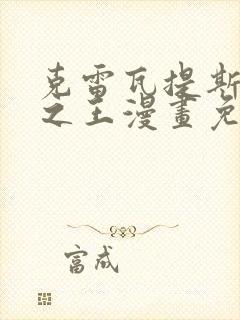 克雷瓦提斯
之王漫畫免
富成